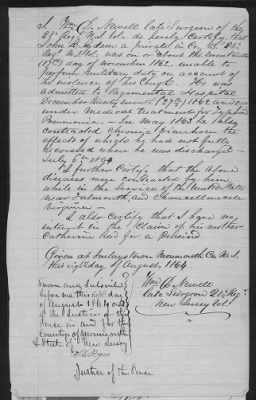 I Wm D. Newell late Surgeon of the
28th Regt N.J. Vols do hereby Certify that
John R. Lyden a private in Co. 28th
Regt N.J. Vols. was on or about the Seventeenth
(17th) day of November 1862 unable to
perform military duty on account of
the violence of his Cough. He was
admitted to Regimental Hospital
December twenty seventh (27th) 1862 and was
under Medical treatment for Typhoid
Pneumonia. In May 1863 he also
contracted Chronic Diarrhoea the
effects of which he had not fully
recovered when he was discharged
July 6th
I further Certify that the above
diseases were contracted by him
while in the service of the United States
near Falmouth and Chancellorsville
Virginia.
I also Certify that I have no
interest in the Claim of his mother
Catherine for a Pension
Given at Imlaystown Monmouth Co N.J.
this eighth day of August 1864
Sworn and Subscribed
before me this day
of August 1864
the Justice of the
Peace in and for the
County of Monmouth
State of New Jersey
Wm D. Newell
late Surgeon 28th Regt
New Jersey Vols
Justice of the Peace